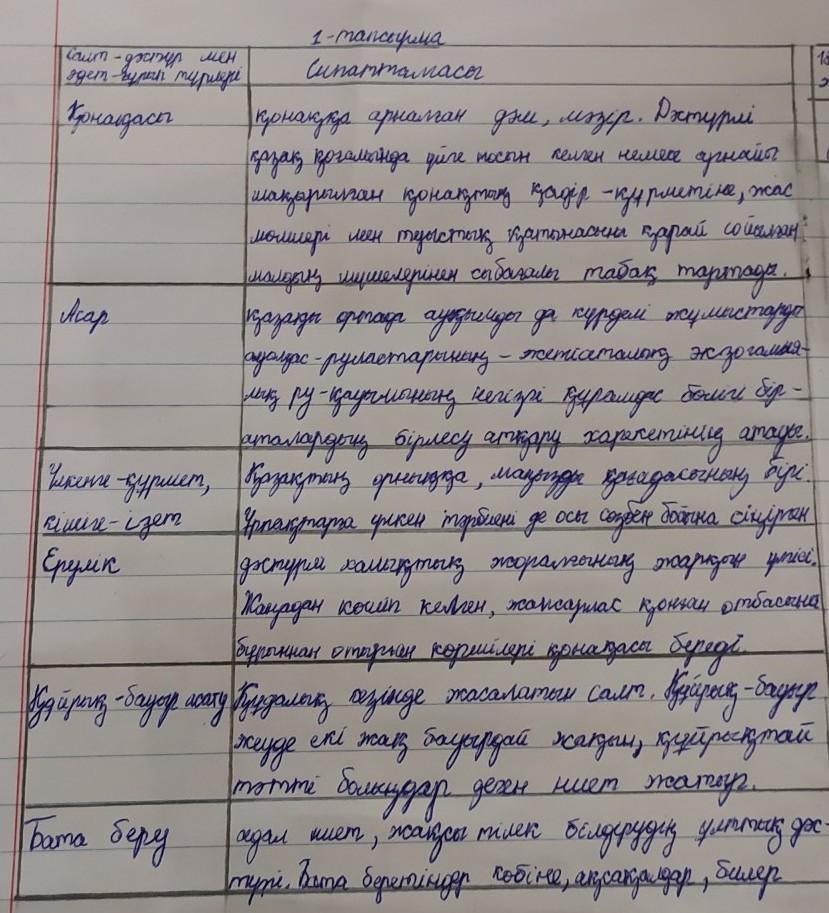 1-тапсырма
Салт-дәстүр мен
әдет-ғұрып түрлері
Сипаттамасы
Қонақасы
қонаққа арналған дәм, мәзір. Дәстүрлі
қазақ қоғамында үйге тосын келген немесе арнайы
шақырылған қонақтың қадір-құрметіне, жас
мөлшері мен туыстық қатынасына қарай сойылған
малдың мүшелерінен сыбағалы табақ тартады.
Асар
қазақы ортада ауқымды да күрделі жұмыстарды
ауылдас-руластарының - жетіаталық экзогамия-
лық ру-қауымының негізгі құрамдас бөлігі бір-
аталардың бірлесу атқару харекетінің атауы.
Үлкенге-құрмет,
кішіге-ізет
Қазақтың орнықққа, маңызды қағидасының бірі.
Ұрпақтарға үлкен тәрбиені де осы сөзбен бойына сіңірген
Ерулік
дәстүрлі халықтық жоралғының жарқын үлгісі.
Жаңадан көшіп келген, жапсарлас қонған отбасына
бұрыннан отырған көршілері қонақасы береді.
Құйрық-бауыр асату
Құдалық кезінде жасалатын салт. Құйрық-бауыр
жеуде екі жақ бауырдай жақын, құйрықтай
тәтті болыңдар деген ниет жатыр.
Бата беру
адал ниет, жақсы тілек білдірудің ұлттық дәс-
түрі. Бата беретіндер көбіне, ақсақалдар, билер